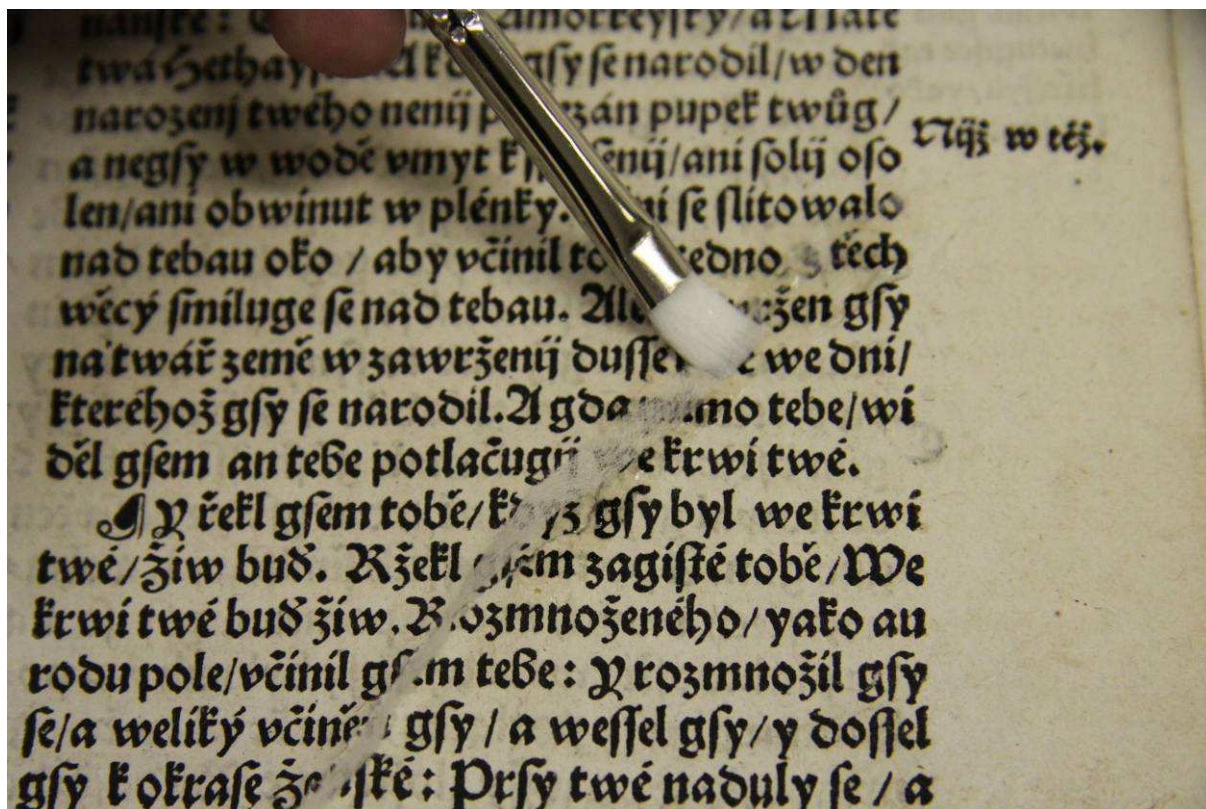 twá Hethayſ
gſy ſe narodil/ w den
narozenj twého nenij pupek twůg/
Nijž w též.
a negſy w wodě vmyt k ſpaſenij/ani ſolij oſo
len/ani obwinut w plénky. ſe ſlitowalo
nad tebau oko / aby včinil to gedno z těch
wěcý ſmiluge ſe nad tebau. Ale gſy
na twář země w zawrženij we dni/
kteréhož gſy ſe narodil. A gda mimo tebe/ wi
děl gſem an tebe potlačugij we krwi twé.
Y řekl gſem tobě/ když gſy byl we krwi
twé/ žiw buď. Ržekl gſem zagiſté tobě/ We
krwi twé buď žiw. Rozmnoženého/ yako au
rodu pole/ včinil gſem tebe: Y rozmnožil gſy
ſe/a weliký včiněn gſy / a weſſel gſy/ y doſſel
gſy k okraſe ženſké: Prſy twé naduly ſe / a